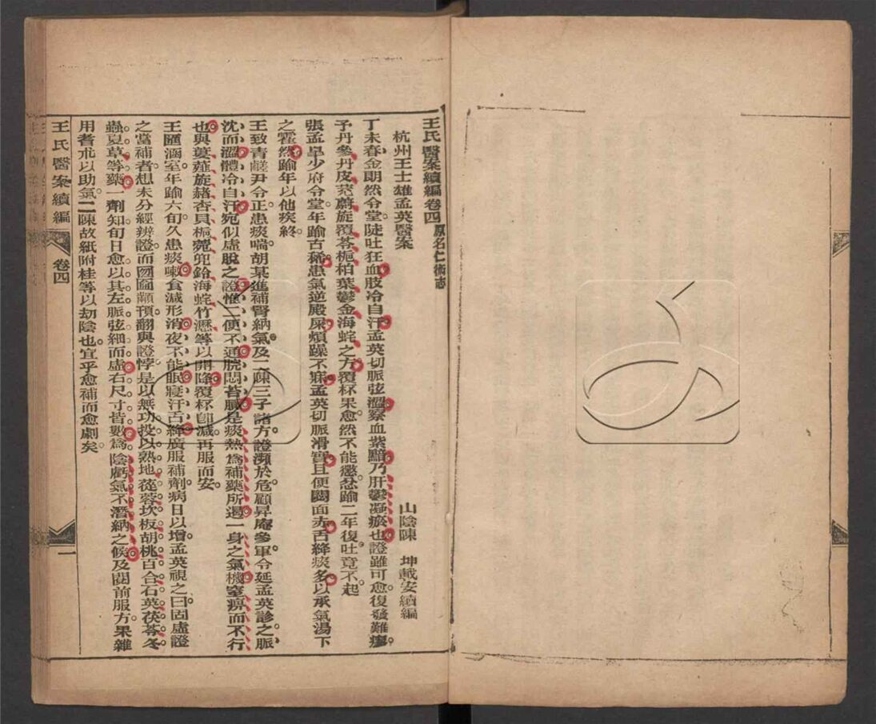 王氏醫案續編卷四原名仁術志
杭州王士雄孟英醫案
山陰陳 坤載安續編
丁未春金朗然令堂陡吐狂血肢冷自汗孟英切脈弦澀察血紫黯乃肝鬱凝瘀也證雖可愈復發難瘳
予丹參丹皮茺蔚旋覆苓梔柏葉鬱金海蛇之方覆杯果愈然不能懲忿踰二年復吐竟不起
張孟皋少府令堂年踰古稀患氣逆殿屎煩躁不寐孟英切脈滑實且便閟面赤舌絳痰多以承氣湯下
之霍然踰年以他疾終
王致青鹺尹令正患痰喘胡某進補腎納氣及二陳三子諸方證瀕於危顧昇庵參軍令延孟英診之脈
沈而澀體冷自汗宛似虛脫之證惟二便不通脘悶苔膩是痰熱為補藥所遏一身之氣機窒痹而不行
也與蔞薤旋赭杏貝梔菀兜鈴海蛇竹瀝等以開降覆杯卽減再服而安
王匯涵室年踰六旬久患痰嗽食減形消夜不能眠寢汗舌絳廣服補劑病日以增孟英視之曰固虛證
之當補者想未分經辨證而囫圇顢頇翻與證悖是以無功投以熟地蓯蓉坎板胡桃百合石英茯苓冬
蟲夏草等藥一劑知旬日愈以其左脈弦細而虛右尺寸皆數為陰虧氣不潛納之候及閱前服方果雜
用耆朮以助氣二陳故紙附桂等以劫陰也宜乎愈補而愈劇矣
王氏醫案續編
卷四
一